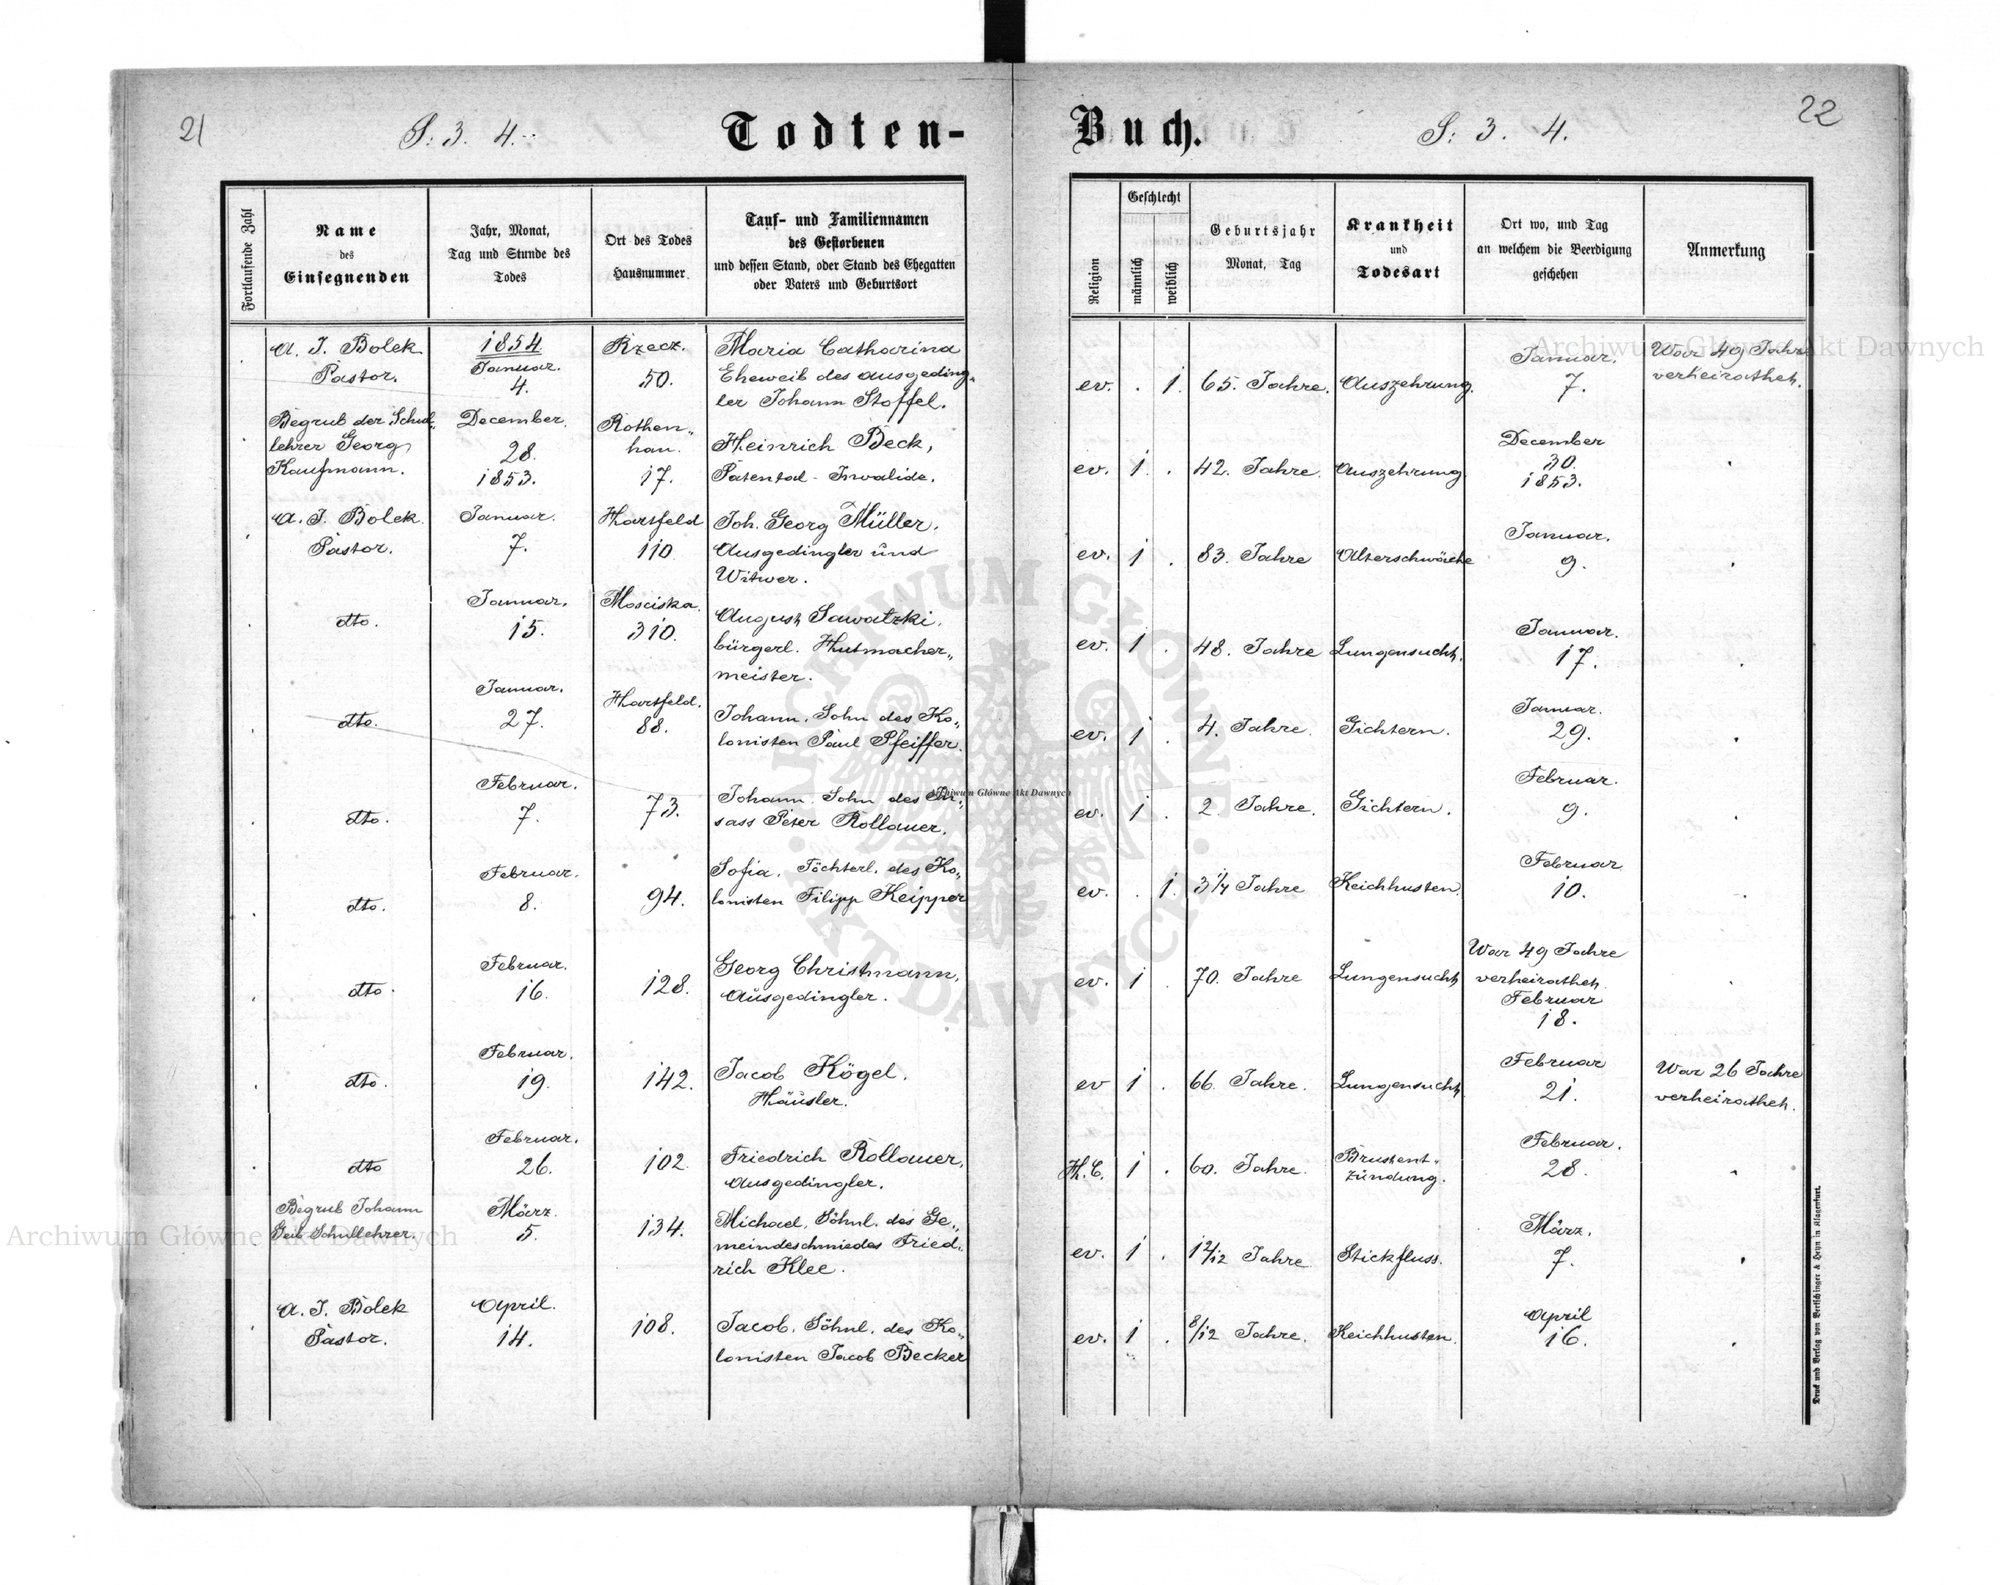 21
S. 3. 4.
Todten-
Buch.
S. 3. 4.
22
Fortlaufende Zahl
Name
des
Einsegnenden
Jahr, Monat,
Tag und Stunde des
Todes
Ort des Todes
Hausnummer
Tauf- und Familiennamen
des Gestorbenen
und dessen Stand, oder Stand des Ehegatten
oder Vaters und Geburtsort
Religion
Geschlecht
männlich
weiblich
Geburtsjahr
Monat, Tag
Krankheit
und
Todesart
Ort wo, und Tag
an welchem die Beerdigung
geschehen
Anmerkung
A. J. Bolek
Pastor.
1854.
Januar.
4.
Rzecz.
50.
Maria Catharina
Eheweib des ausgeding„
ler Johann Stoffel.
ev. . 1. 65. Jahre. Auszehrung.
Januar.
7.
War 49 Jahre
verheirathet.
Begrub der Schul„
lehrer Georg
Kaufmann.
December.
28.
1853.
Rothen„
han.
17.
Heinrich Beck,
Patental-Invalide.
ev. 1. . 42. Jahre. Auszehrung.
December
30.
1853.
A. J. Bolek.
Pastor.
Januar.
7.
Hartfeld
110
Joh. Georg Müller.
Ausgedingler und
Witwer.
ev. 1 . 83. Jahre Altersschwäche
Januar.
9.
dto.
Januar.
15.
Mosciska.
310.
August Sawatzki.
bürgerl. Hutmacher„
meister.
ev. 1 . 48. Jahre Lungensucht.
Januar.
17.
dto.
Januar.
27.
Hartfeld.
88.
Johann. Sohn des Ko„
lonisten Paul Pfeiffer.
ev. 1 . 4. Jahre. Gichtern.
Januar.
29.
dto.
Februar.
7.
73.
Johann. Sohn des In„
sass Peter Rollauer.
ev. 1 . 2. Jahre. Gichtern.
Februar.
9.
dto.
Februar.
8.
94.
Sofia. Töchterl. des Ko„
lonisten Filipp Keipper
ev. . 1. 3 1/4 Jahre Keichhusten.
Februar
10.
dto.
Februar.
16.
128.
Georg Christmann,
Ausgedingler.
ev. 1 . 70. Jahre Lungensucht
War 49 Jahre
verheirathet.
Februar
18.
dto.
Februar.
19.
142.
Jacob Kögel.
Häusler.
ev 1 . 66. Jahre. Lungensucht
Februar
21.
War 26 Jahre
verheirathet.
dto
Februar.
26.
102.
Friedrich Rollauer,
Ausgedingler.
H. C. 1 . 60. Jahre.
Brustent„
zündung.
Februar.
28.
Begrub Johann
Geib Schullehrer.
März.
5.
134.
Michael, Söhnl. des Ge„
meindeschmiedes Fried„
rich Klee.
ev. 1 . 1 2/12 Jahre Stickfluss.
März.
7.
A. J. Bolek
Pastor.
April.
14.
108.
Jacob. Söhnl. des Ko„
lonisten Jacob Becker
ev. 1 . 8/12 Jahre. Keichhusten.
April
16.
Druck und Verlag von Bertschinger & Heyn in Klagenfurt.
Archiwum Główne Akt Dawnych
Archiwum Główne Akt Dawnych
Archiwum Główne Akt Dawnych
ARCHIWUM GŁÓWNE
AKT DAWNYCH